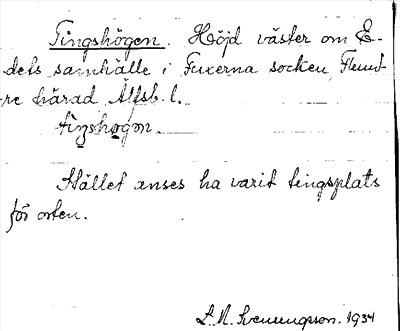 Tingshögen. Höjd väster om E-
dets samhälle i Fuxerna socken, Flund-
re härad Älfsb. l.
tiŋshøgen.
Stället anses ha varit tingsplats
för orten.
L. M. Svenungsson. 1934